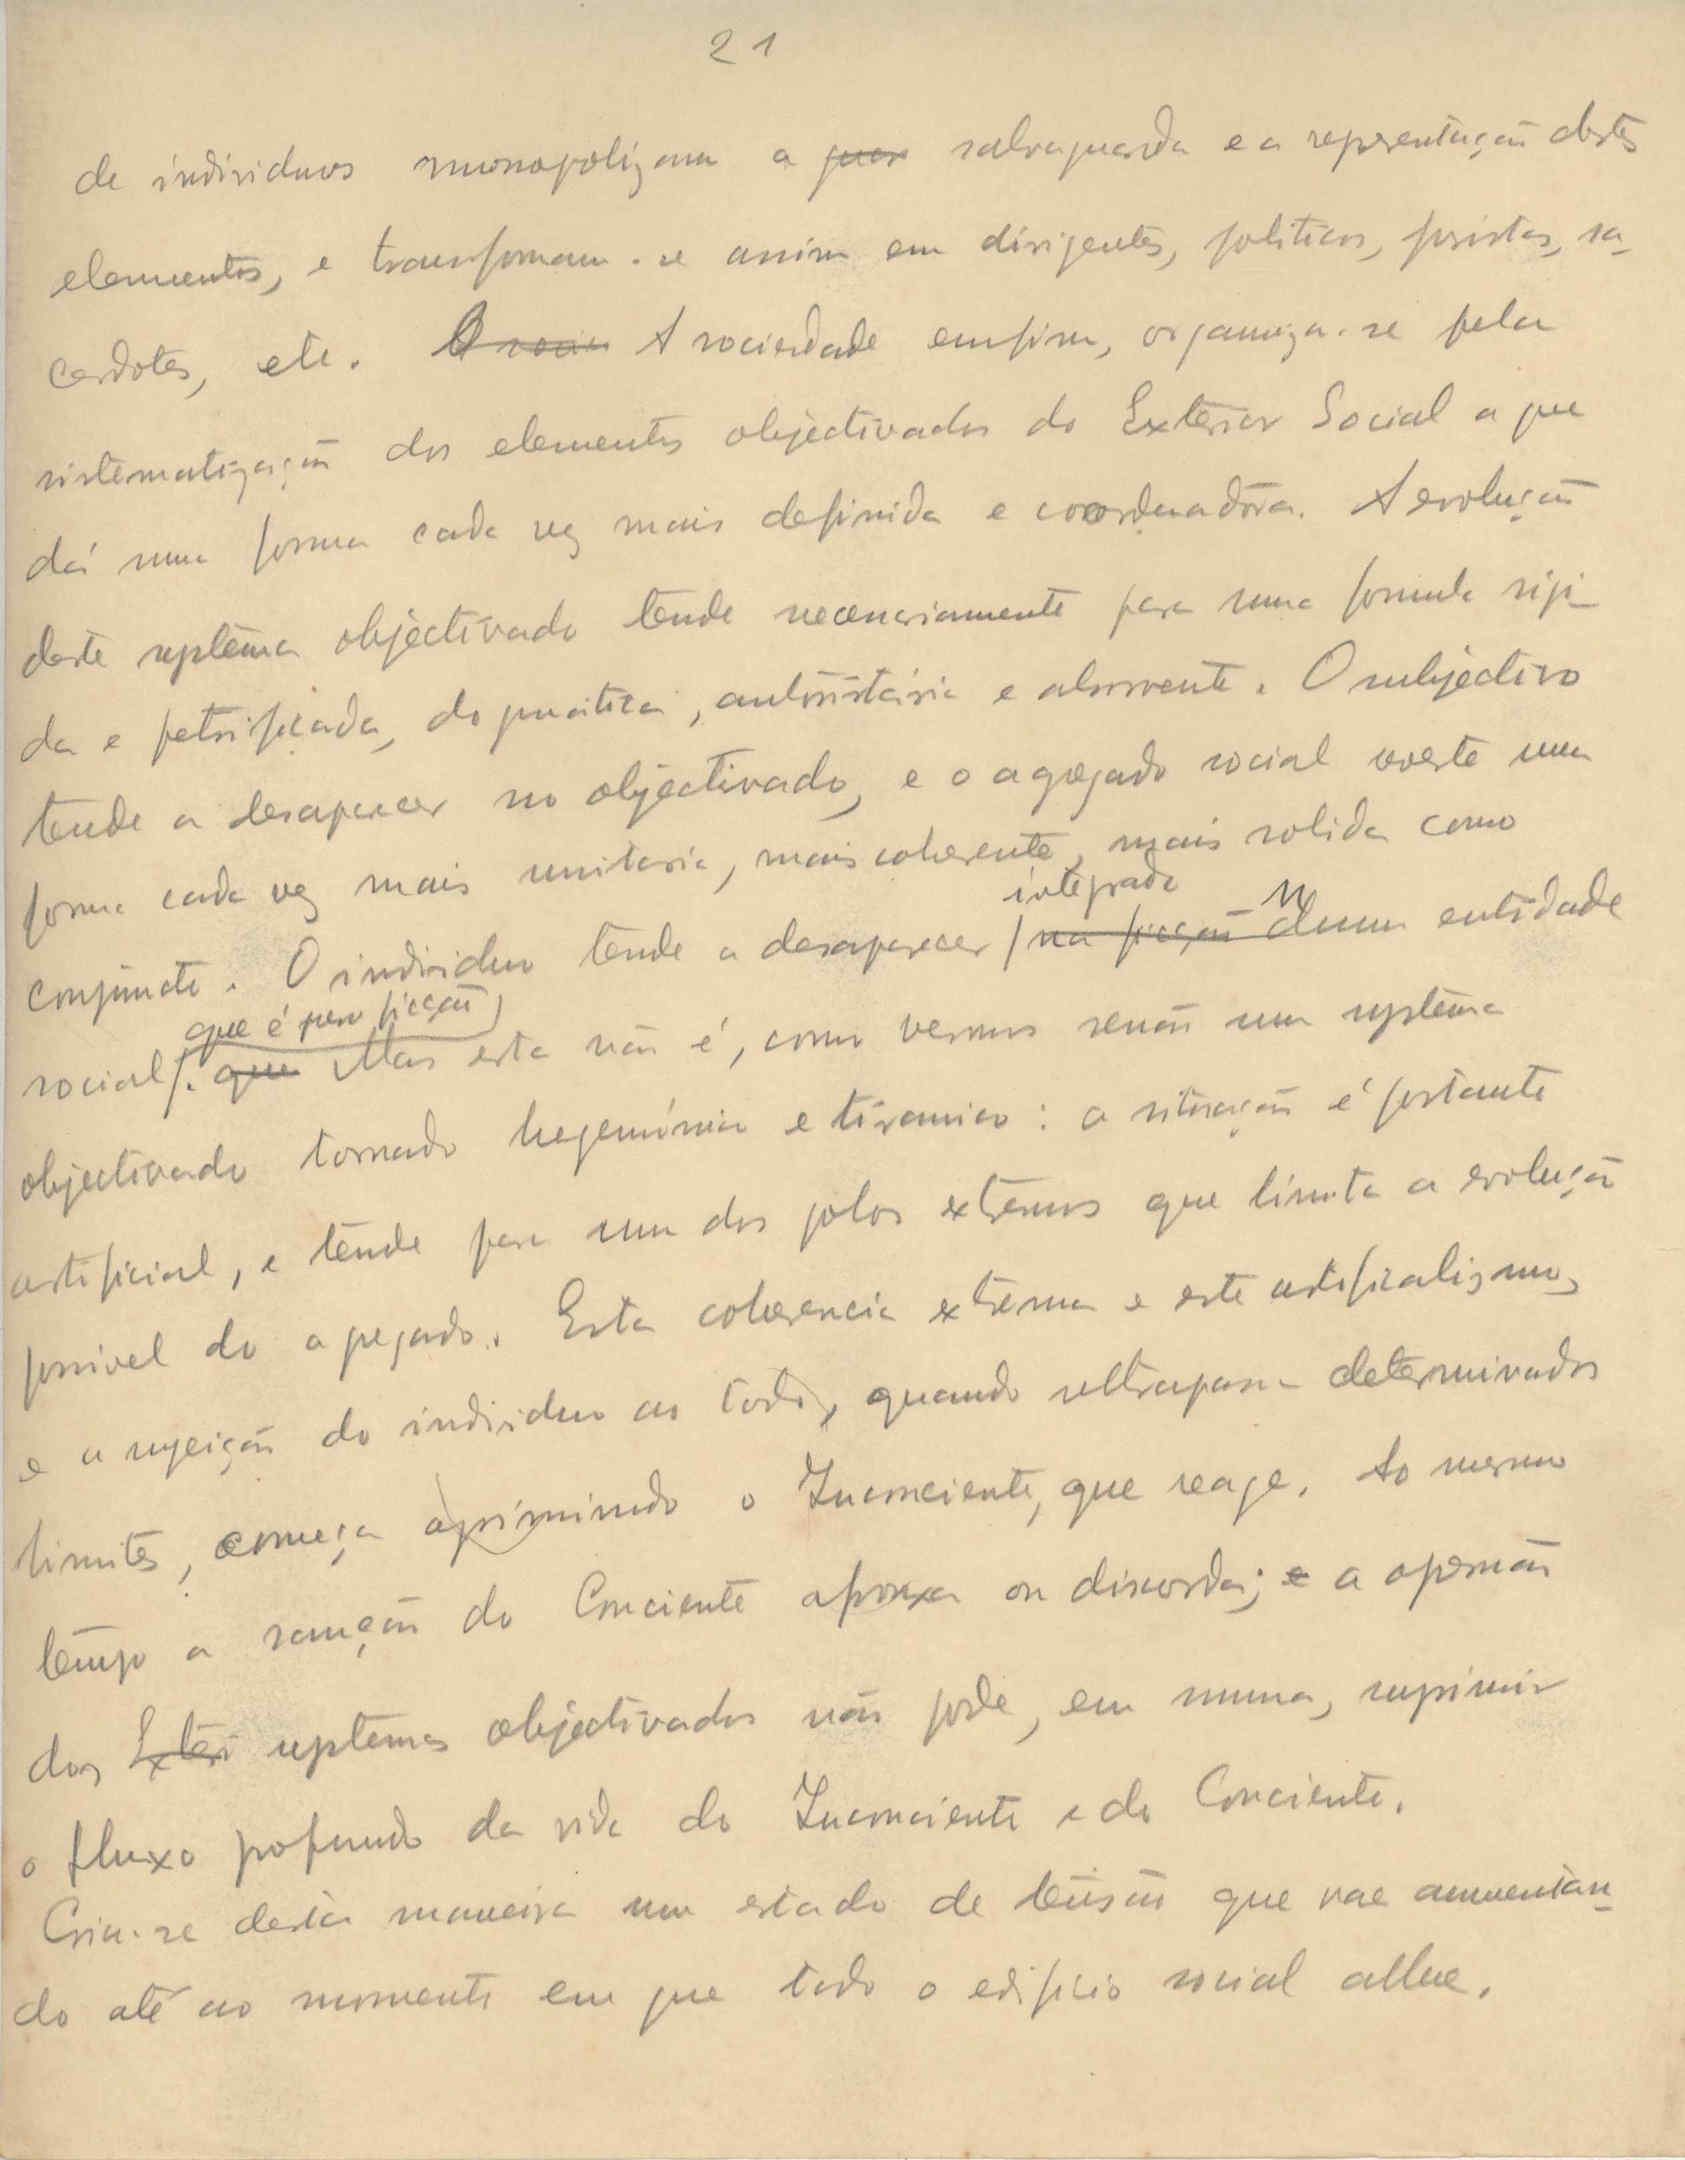 21
de individuos monopolizam a guar salvaguarda e a representação destes
elementos, e transformam-se assim em dirigentes, politicos, juristas, sa-
cerdotes, etc. O socie A sociedade emfim, organiza-se pela
sistematização dos elementos objectivados do Exterior Social a que
dá uma forma cada vez mais definida e coordenadora. A evolução
deste systêma objectivado tende necessariamente para uma formula rigi-
da e petrificada, dogmática, autoritária e absorvente. O subjectivo
tende a desaparecer no objectivado, e o agregado social reveste uma
forma cada vez mais unitaria, mais coherente, mais solida como
integrado N
conjuncto. O individuo tende a desaparecer / na ficção duma entidade
que é pura ficção
social /. que Mas esta não é, como vemos senão um systêma
objectivado tornado hegemónico e tirânico: a situação é portanto
artificial, e tende para um dos polos extremos que limita a evolução
possivel do agregado. Esta coherencia extrema e este artificialismo,
e a sujeição do individuo ao todo, quando ultrapassa determinados
limites, começa oprimindo o Inconsciente, que reage. Ao mesmo
tempo a sanção do Conciente afrouxa ou discorda; e a opressão
dos Exteri systemas objectivados não pode, em summa, suprimir
o fluxo profundo da vida do Inconsciente e do Conciente.
Cria-se desta maneira um estado de tensão que vae aumentan-
do até ao momento em que todo o edificio social allue.